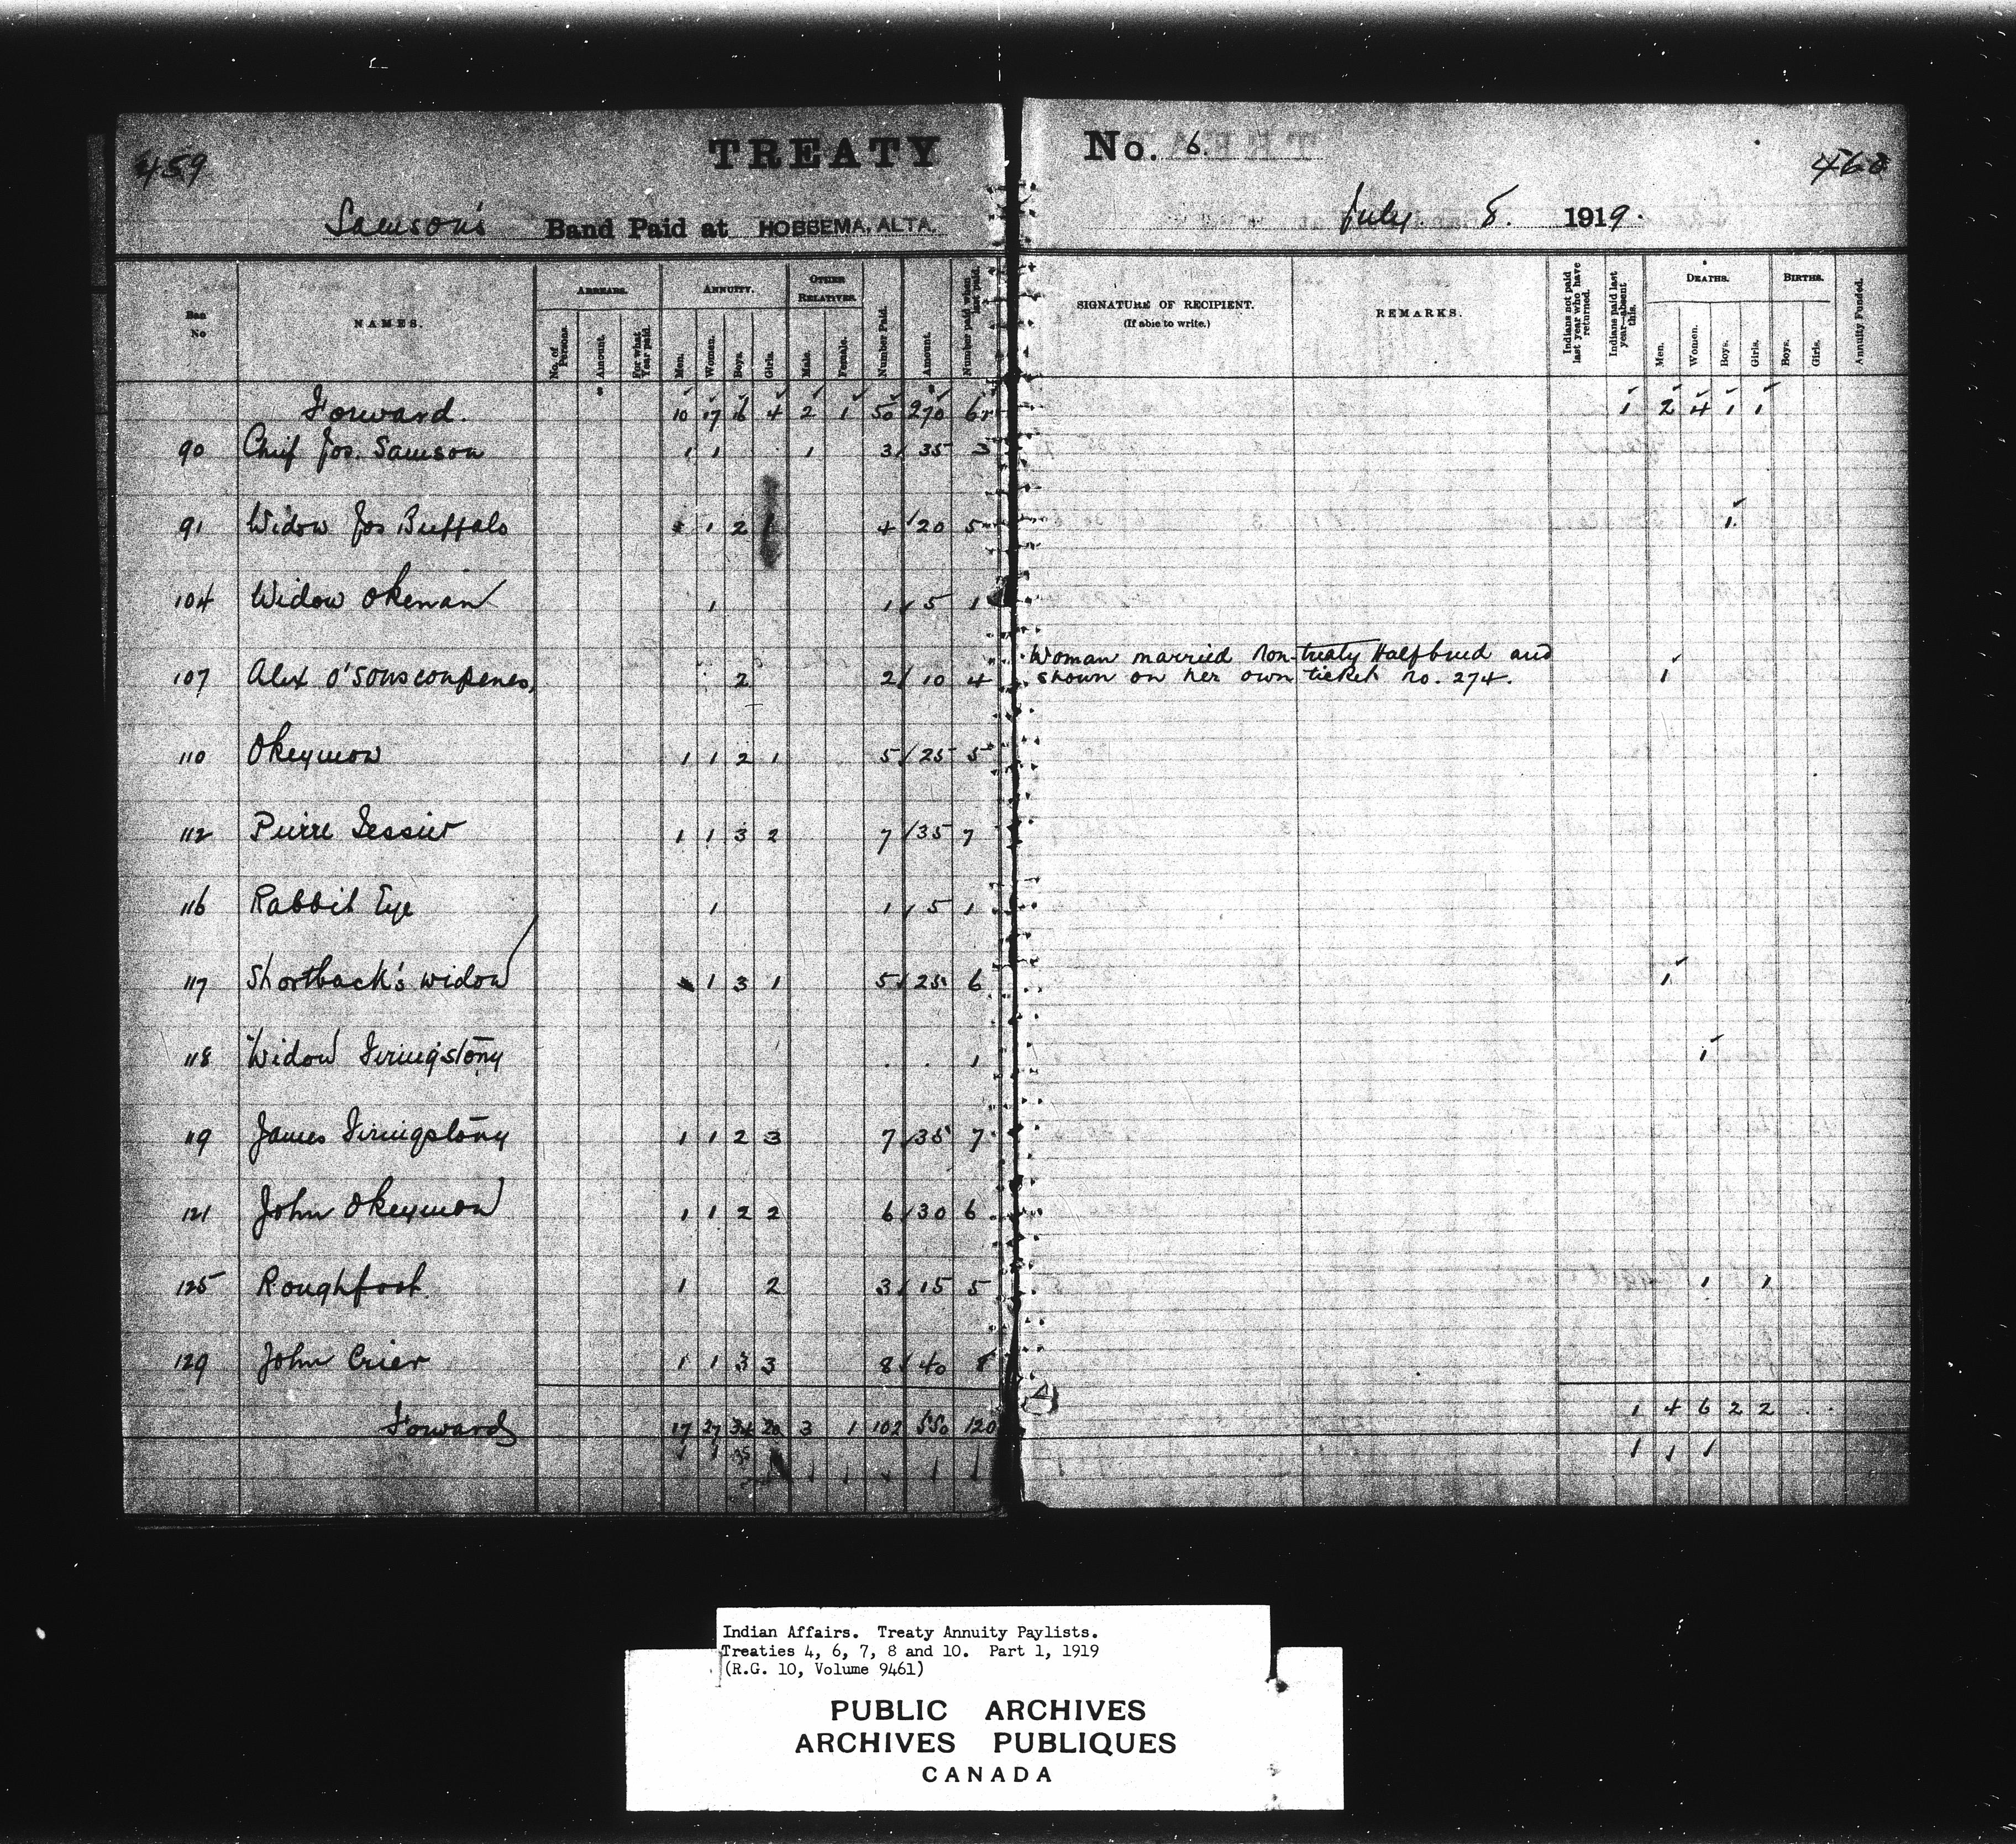 459
TREATY No. 6.
460
Samson's Band Paid at HOBBEMA, ALTA. July 8. 1919.
No NAMES. ARREARS. ANNUITY. OTHER RELATIVES. SIGNATURE OF RECIPIENT. (If able to write.) REMARKS. DEATHS. BIRTHS.
No. of Persons. Amount. For what Year paid. Men. Women. Boys. Girls. Male. Female. Number Paid. Amount. Number paid when last paid. Indians not paid last year who have returned. Indians paid last year—absent this. Men. Women. Boys. Girls. Boys. Girls. Annuity Funded.
Forward. 10 17 16 4 2 1 50 270 61 1 2 4 1 1
90 Chief Jos. Samson 1 1 1 3 35 3
91 Widow Jos Buffalo 1 2 1 4 20 5 1
104 Widow Okeman 1 1 5 1
Woman married Non-treaty Halfbreed and
107 Alex O'Sonsconpenes, 2 2 10 4 shown on her own ticket no. 274. 1
110 Okeymow 1 1 2 1 5 25 5
112 Pierre Tessier 1 1 3 2 7 35 7
116 Rabbit Eye 1 1 5 1
117 Shortback's widow 1 3 1 5 25 6 1
118 Widow 1 1
119 James 1 1 2 3 7 35 7
121 John Okeymow 1 1 2 2 6 30 6
125 Roughfoot 1 2 3 15 5 1 1
129 John Crier 1 1 3 3 8 40 8
Forward 17 27 34 20 3 1 102 550 120 1 4 6 2 2
1 1 35 1 1 1
Indian Affairs. Treaty Annuity Paylists.
Treaties 4, 6, 7, 8 and 10. Part 1, 1919
(R.G. 10, Volume 9461)
PUBLIC ARCHIVES
ARCHIVES PUBLIQUES
CANADA